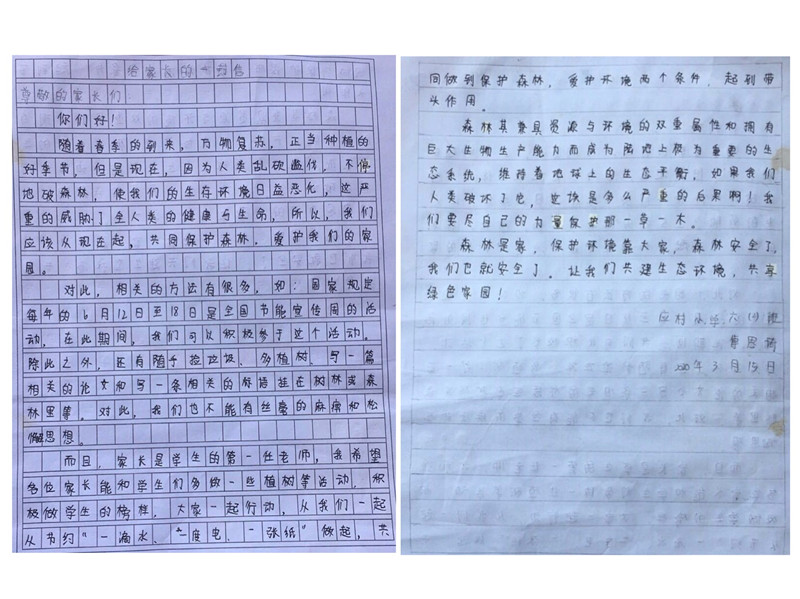 给家长的一封信
尊敬的家长们
你们好！
随着春季的到来，万物复苏，正当种植的
好季节，但是现在，因为人类乱砍滥伐，不停
地破森林，使我们的生存环境日益恶化，这严
重的威胁了全人类的健康与生命，所以，我们
应该从现在起，共同保护森林，爱护我们的家
园。
对此，相关的方法有很多，如：国家规定
每年的6月12日至18日是全国节能宣传周的活
动，在此期间，我们可以积极参于这个活动。
除此之外，还有随手捡垃圾、多植树、写一篇
相关的论文和写一条相关的标语挂在树林或森
林里等。对此，我们也不能有丝毫的麻痹和松
懈思想。
而且，家长是学生的第一任老师，我希望
各位家长能和学生们多做一些植树等活动，积
极做学生的榜样，大家一起行动，从我们一起
从节约“一滴水、一度电、一张纸”做起，共
同做到保护森林，爱护环境两个条件，起到带
头作用。
森林其兼具资源与环境的双重属性和拥有
巨大生物生产能力而成为陆地上极为重要的生
态系统，维持着地球上的生态平衡，如果我们
人类破坏了它，这该是多么严重的后果啊！我
们要尽自己的力量保护那一草一木。
森林是家，保护环境靠大家，森林安全了，
我们也就安全了。让我们共建生态环境，共享
绿色家园！
应村小学六(1)班
3月15日